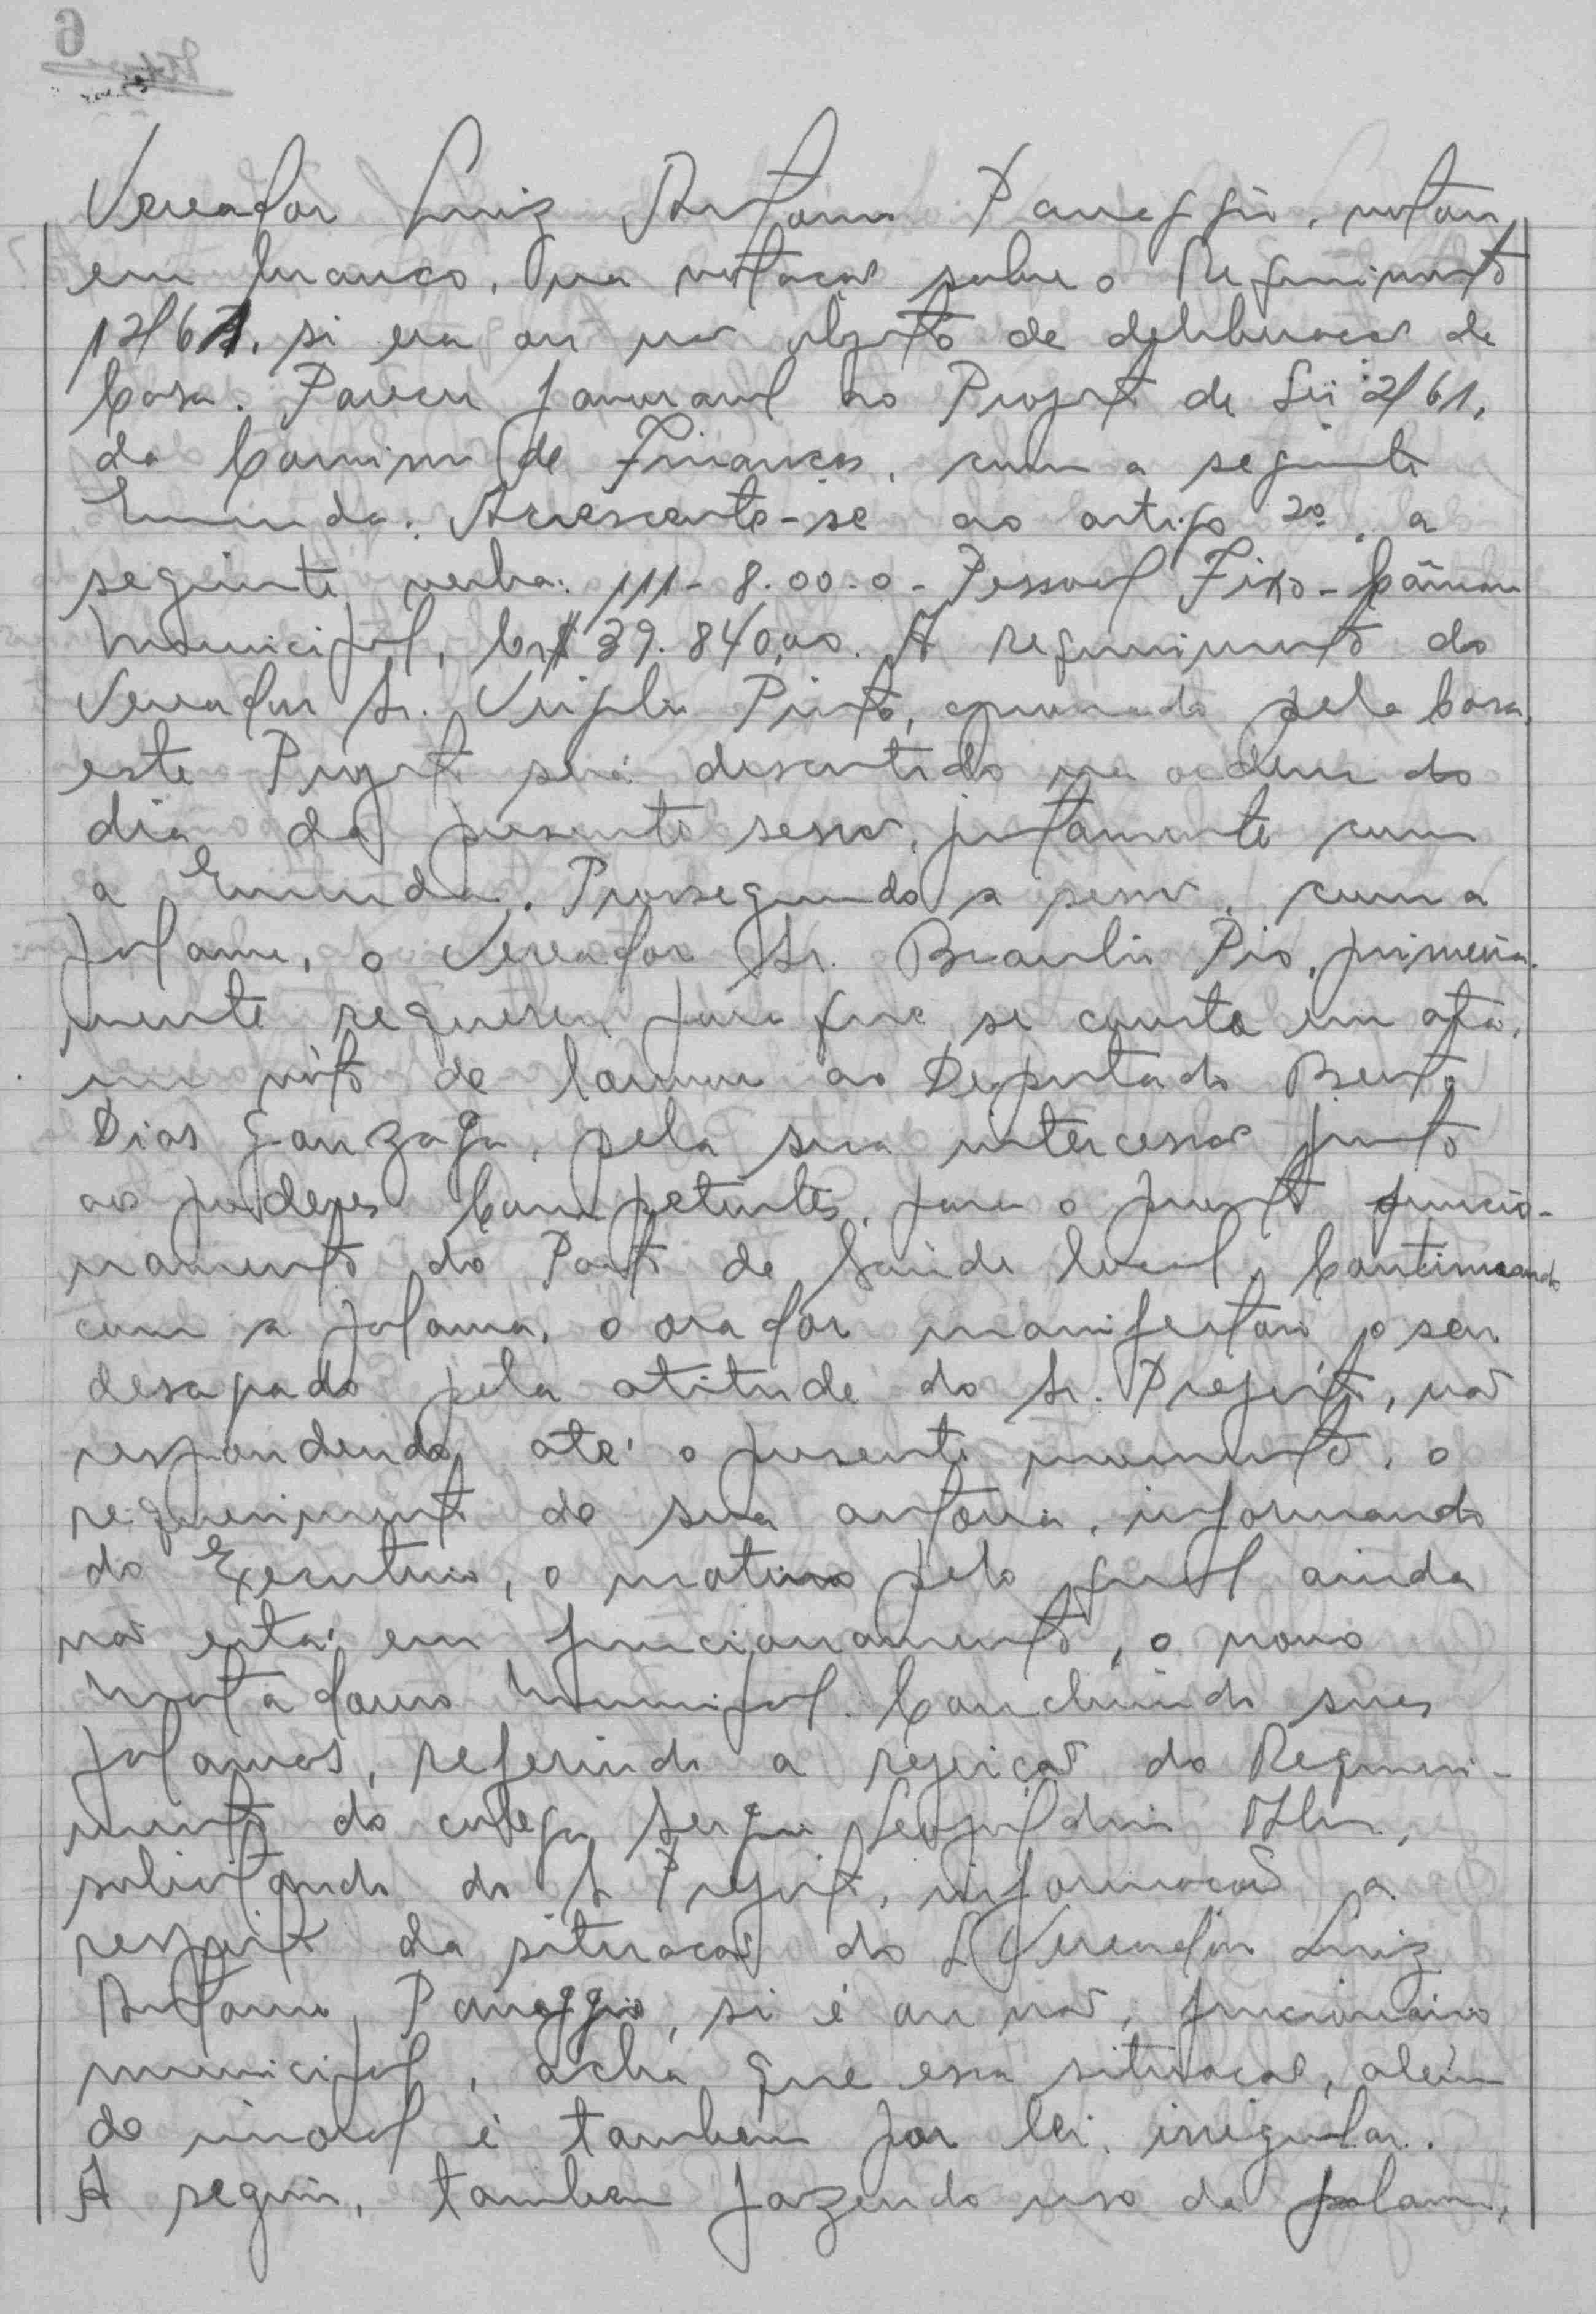 Vereador Luiz Antonio Paneggio, votou
em branco, na votação sobre o Requerimento
12/61, si era ou não objeto de deliberação da
Casa. Parecer favoravel ao Projeto de Lei 2/61,
da Comissão de Finanças, com a seguinte
Emenda: Acrescente-se ao artigo 2º, a
seguinte verba: 111-8.00.0-Pessoal Fixo-Câmara
Municipal, Cr$ 39.840,00. A requerimento do
Vereador Sr. Pinto, aprovado pela Casa,
este Projeto será descutido na ordem do
dia da presente sessão, juntamente com
a Emenda. Prosseguindo a sessão, com a
palavra, o Vereador Sr. Braulio Pio, primeira-
mente requereu para que se consta em ata,
um vóto de louvor ao Deputado Bento
Dias Gonzaga, pela sua intercessão junto
aos poderes Competentes, para o funcio-
namento do Posto de Saúde local. Continuando
com a palavra, o orador manifestou o seu
desagrado pela atitude do Sr. Prefeito, não
respondendo até o presente momento, o
requerimento de sua autoria, informando
do Executivo, o motivo pelo qual ainda
não está em funcionamento, o novo
Matadouro Municipal. Concluindo suas
palavras, referindo a rejeição do Requeri-
mento do colega Sergio Leopoldino
solicitando do Sr Prefeito, informação a
respeito da situação do Sr Vereador Luiz
Antonio Paneggio, si é ou não, funcionário
municipal, achá que essa situação, além
de imoral é tambem por lei, irregular.
A seguir, tambem fazendo uso da palavra,